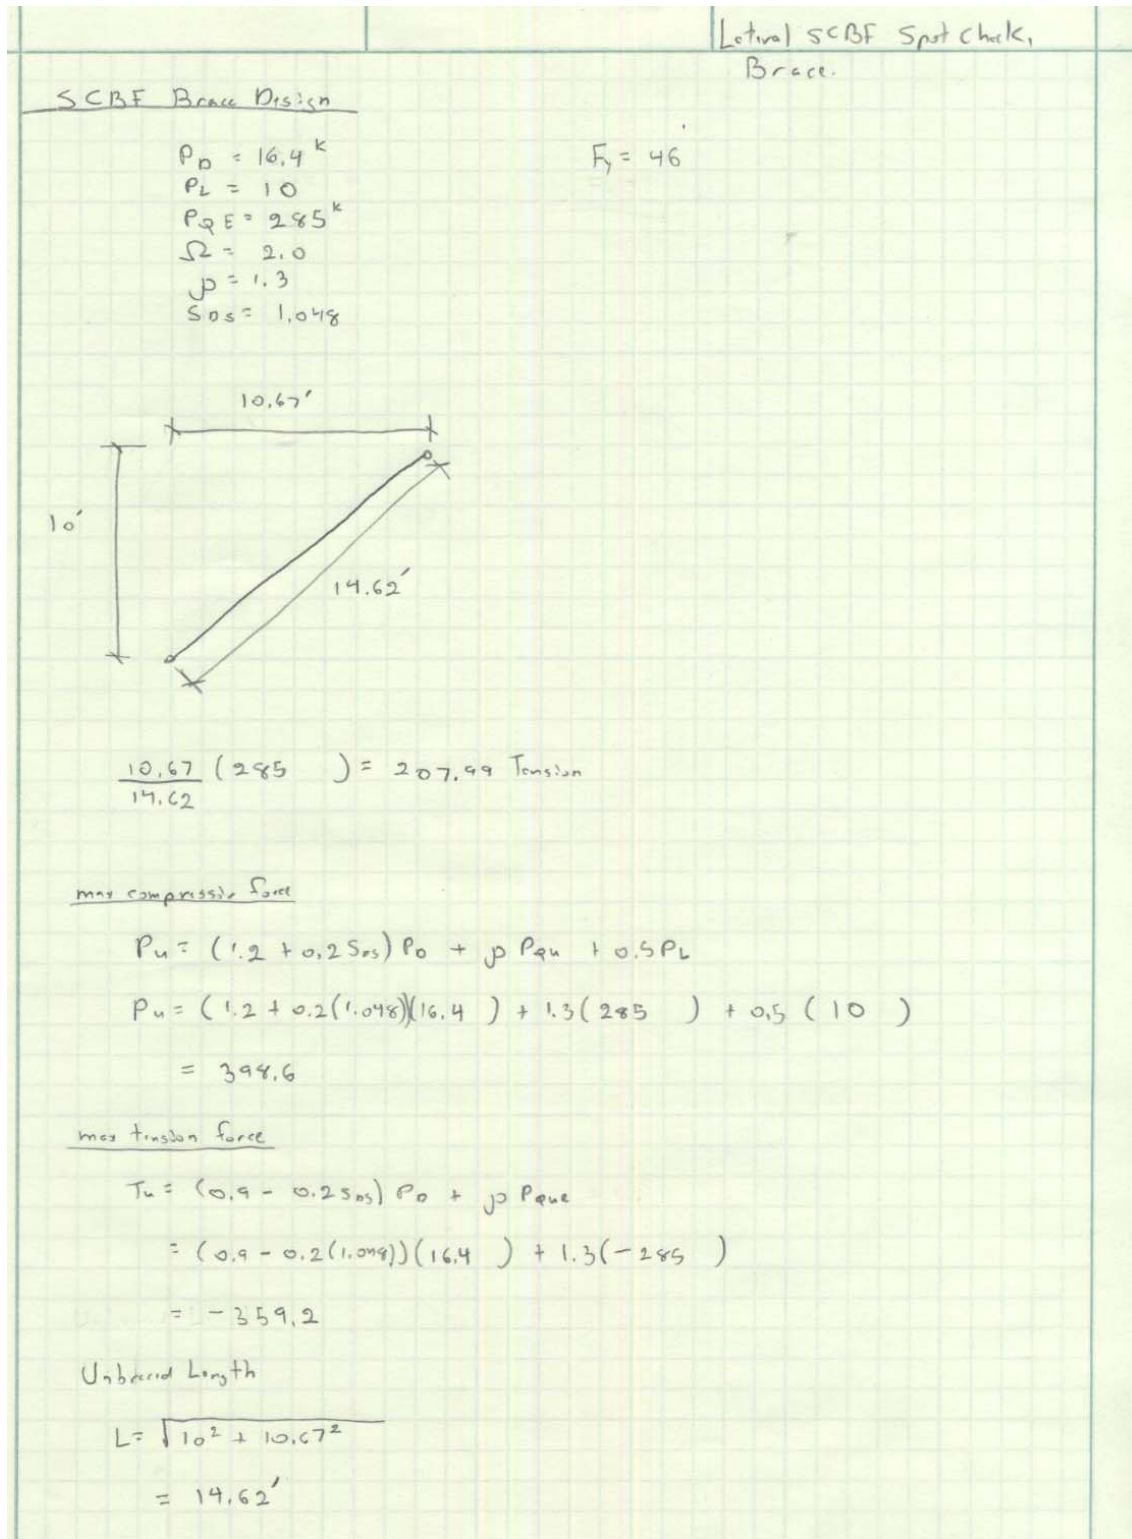 Lateral SCBF Spot Check,
Brace.
SCBF Brace Design
P_D = 16.4^k
F_y = 46
P_L = 10
P_QE = 285^k
Ω = 2.0
ρ = 1.3
S_DS = 1.048
10.67'
10'
14.62'
10.67/14.62 (285 ) = 207.99 Tension
max compressiv force
P_u = (1.2 + 0.2 S_DS) P_D + ρ P_Qu + 0.5 P_L
P_u = (1.2 + 0.2(1.048))(16.4 ) + 1.3(285 ) + 0.5 (10 )
= 398.6
max tension force
T_u = (0.9 - 0.2 S_DS) P_D + ρ P_Que
= (0.9 - 0.2(1.048))(16.4 ) + 1.3(-285 )
= -359.2
Unbraced Length
L = √10² + 10.67²
= 14.62'